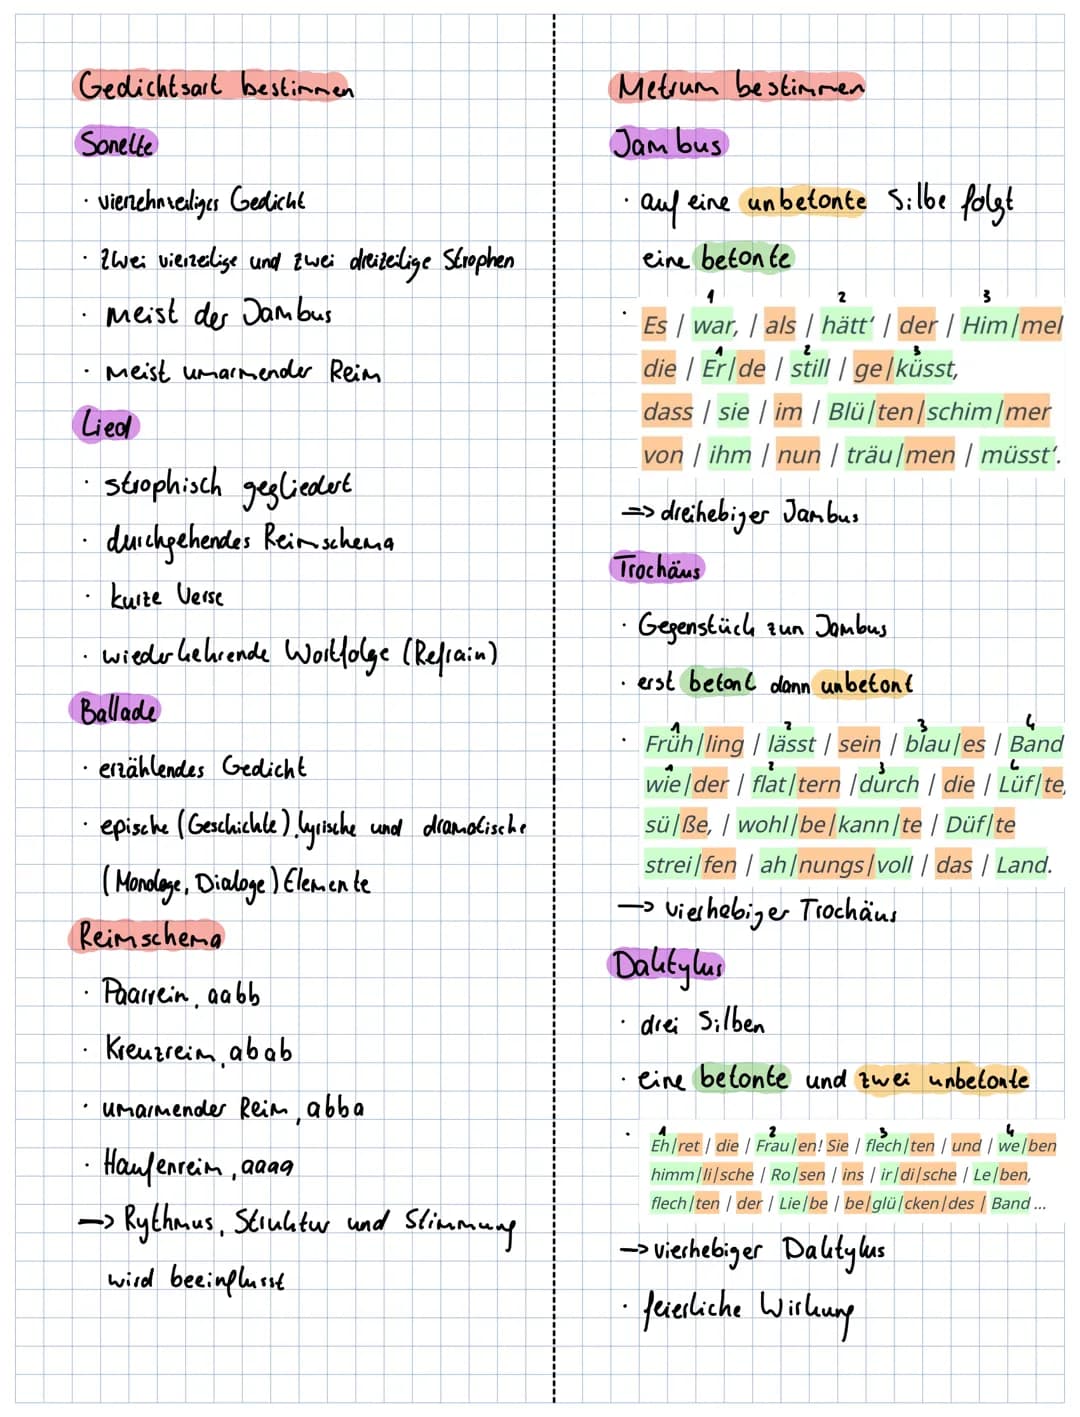 Gedichtsart bestimmen
Sonette
· vierzehnzeiliges Gedicht
· zwei vierzeilige und zwei dreizeilige Strophen
· meist der Jambus
· meist umarmender Reim
Lied
· strophisch gegliedert
· durchgehendes Reimschema
· kurze Verse
· wiederkehrende Wortfolge (Refrain)
Ballade
· erzählendes Gedicht
· epische (Geschichte), lyrische und dramatische
(Monologe, Dialoge) Elemente
Reimschema
· Paarreim, aabb
· Kreuzreim, abab
· umarmender Reim, abba
· Haufenreim, aaaa
—> Rythmus, Struktur und Stimmung
wird beeinflusst
Metrum bestimmen
Jambus
· auf eine unbetonte Silbe folgt
eine betonte
1 2 3
· Es | war, | als | hätt‘ | der | Him|mel
1 2 3
die | Er|de | still | ge|küsst,
dass | sie | im | Blü|ten|schim|mer
von | ihm | nun | träu|men | müsst‘.
=> dreihebiger Jambus
Trochäus
· Gegenstück zum Jambus
· erst betont dann unbetont
1 2 3 4
· Früh|ling | lässt | sein | blau|es | Band
1 2 3 4
wie|der | flat|tern |durch | die | Lüf|te,
sü|ße, | wohl|be|kann|te | Düf|te
strei|fen | ah|nungs|voll | das | Land.
—> vierhebiger Trochäus
Daktylus
· drei Silben
· eine betonte und zwei unbetonte
1 2 3 4
· Eh|ret | die | Frau|en! Sie | flech|ten | und | we|ben
himm|li|sche | Ro|sen | ins | ir|di|sche | Le|ben,
flech|ten | der | Lie|be | be|glü|cken|des | Band ...
—> vierhebiger Daktylus
· feierliche Wirkung